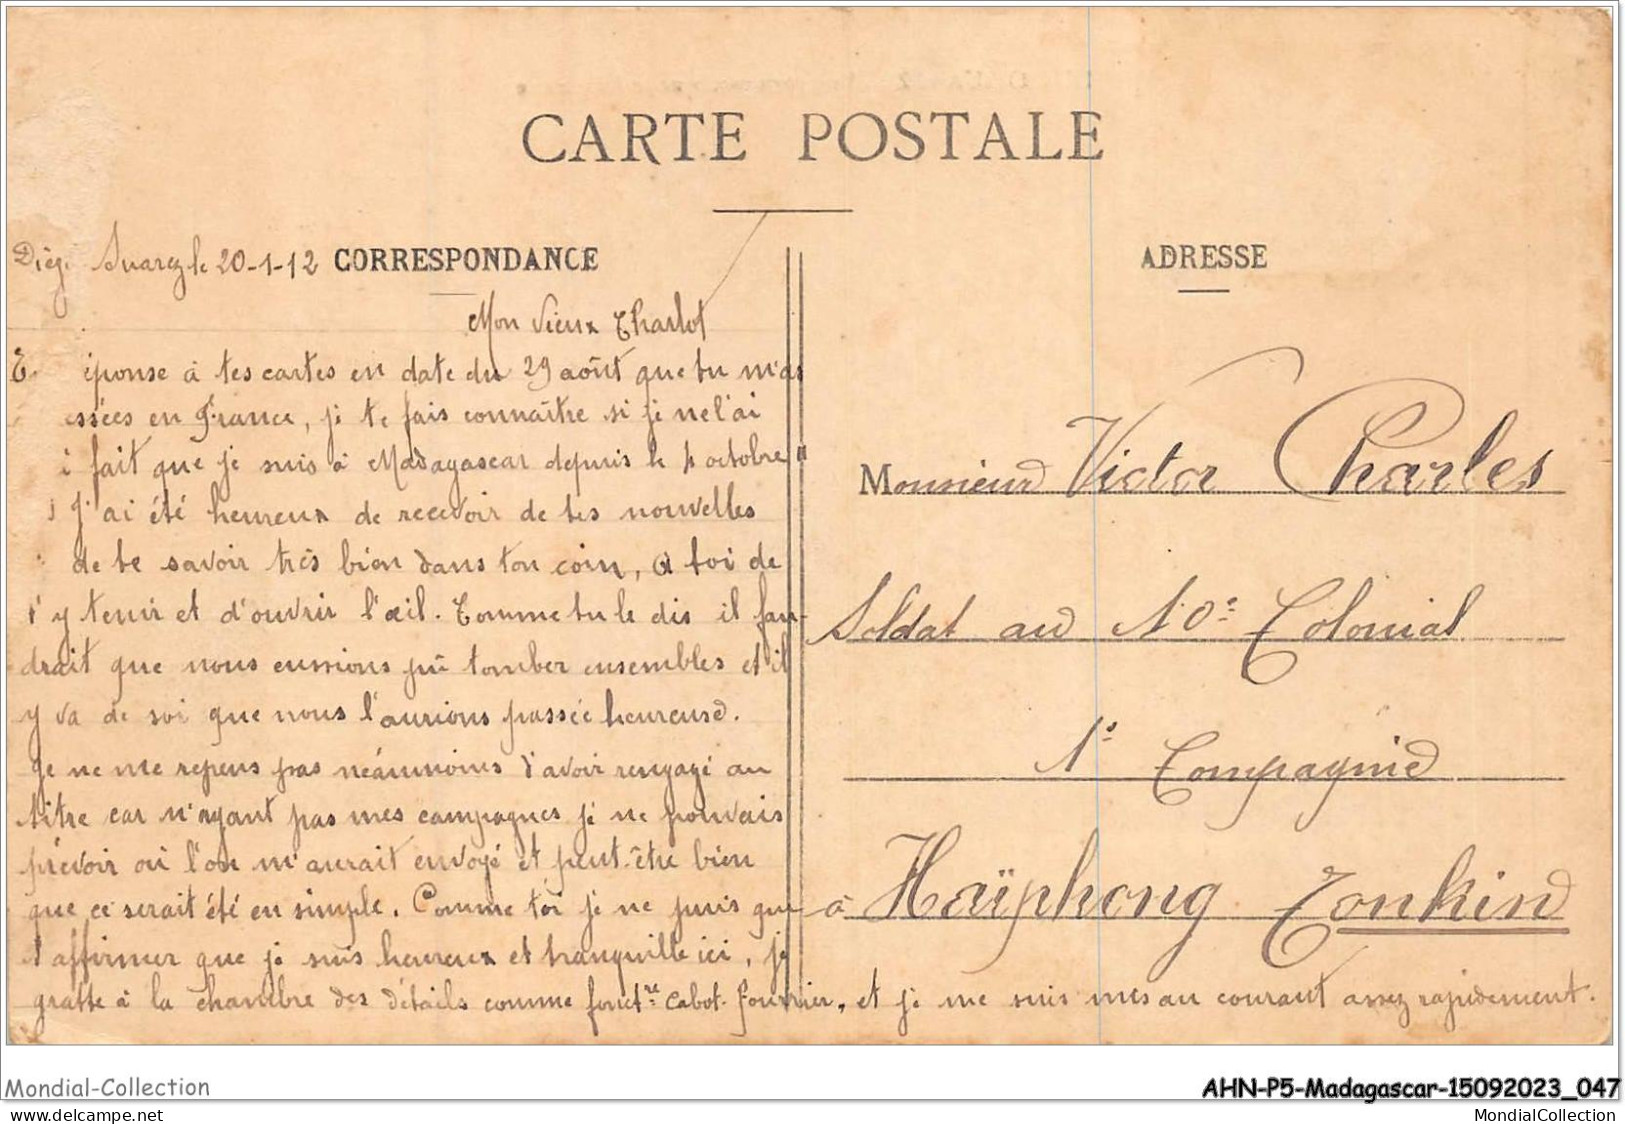 CARTE POSTALE
Dieg. Suarez le 20-1-12 CORRESPONDANCE
Mon Vieux Charlot
éponse à tes cartes en date du 29 août que tu m'as
ssées en France, je te fais connaître si je ne l'ai
fait que je suis à Madagascar depuis le 1 octobre
J'ai été heureux de recevoir de tes nouvelles
de te savoir très bien dans ton coin, à toi de
t'y tenir et d'ouvrir l'œil. Comme tu le dis il fau-
drait que nous eussions pû tomber ensembles et il
y va de soi que nous l'aurions passée heureuse.
Je ne me repens pas néanmoins d'avoir rengagé au
titre car n'ayant pas mes campagnes je ne pouvais
prévoir où l'on m'aurait envoyé et peut-être bien
que ce serait été en simple. Comme toi je ne puis que
t'affirmer que je suis heureux et tranquille ici, je
gratte à la chambre des détails comme fonct.re Cabot-fourrier, et je me suis mis au courant assez rapidement.
ADRESSE
Monsieur Victor Charles
Soldat au 10e Colonial
1e Compagnie
à Haïphong Tonkin
Mondial-Collection
AHN-P5-Madagascar-15092023_047
delcampe.net
MondialCollection